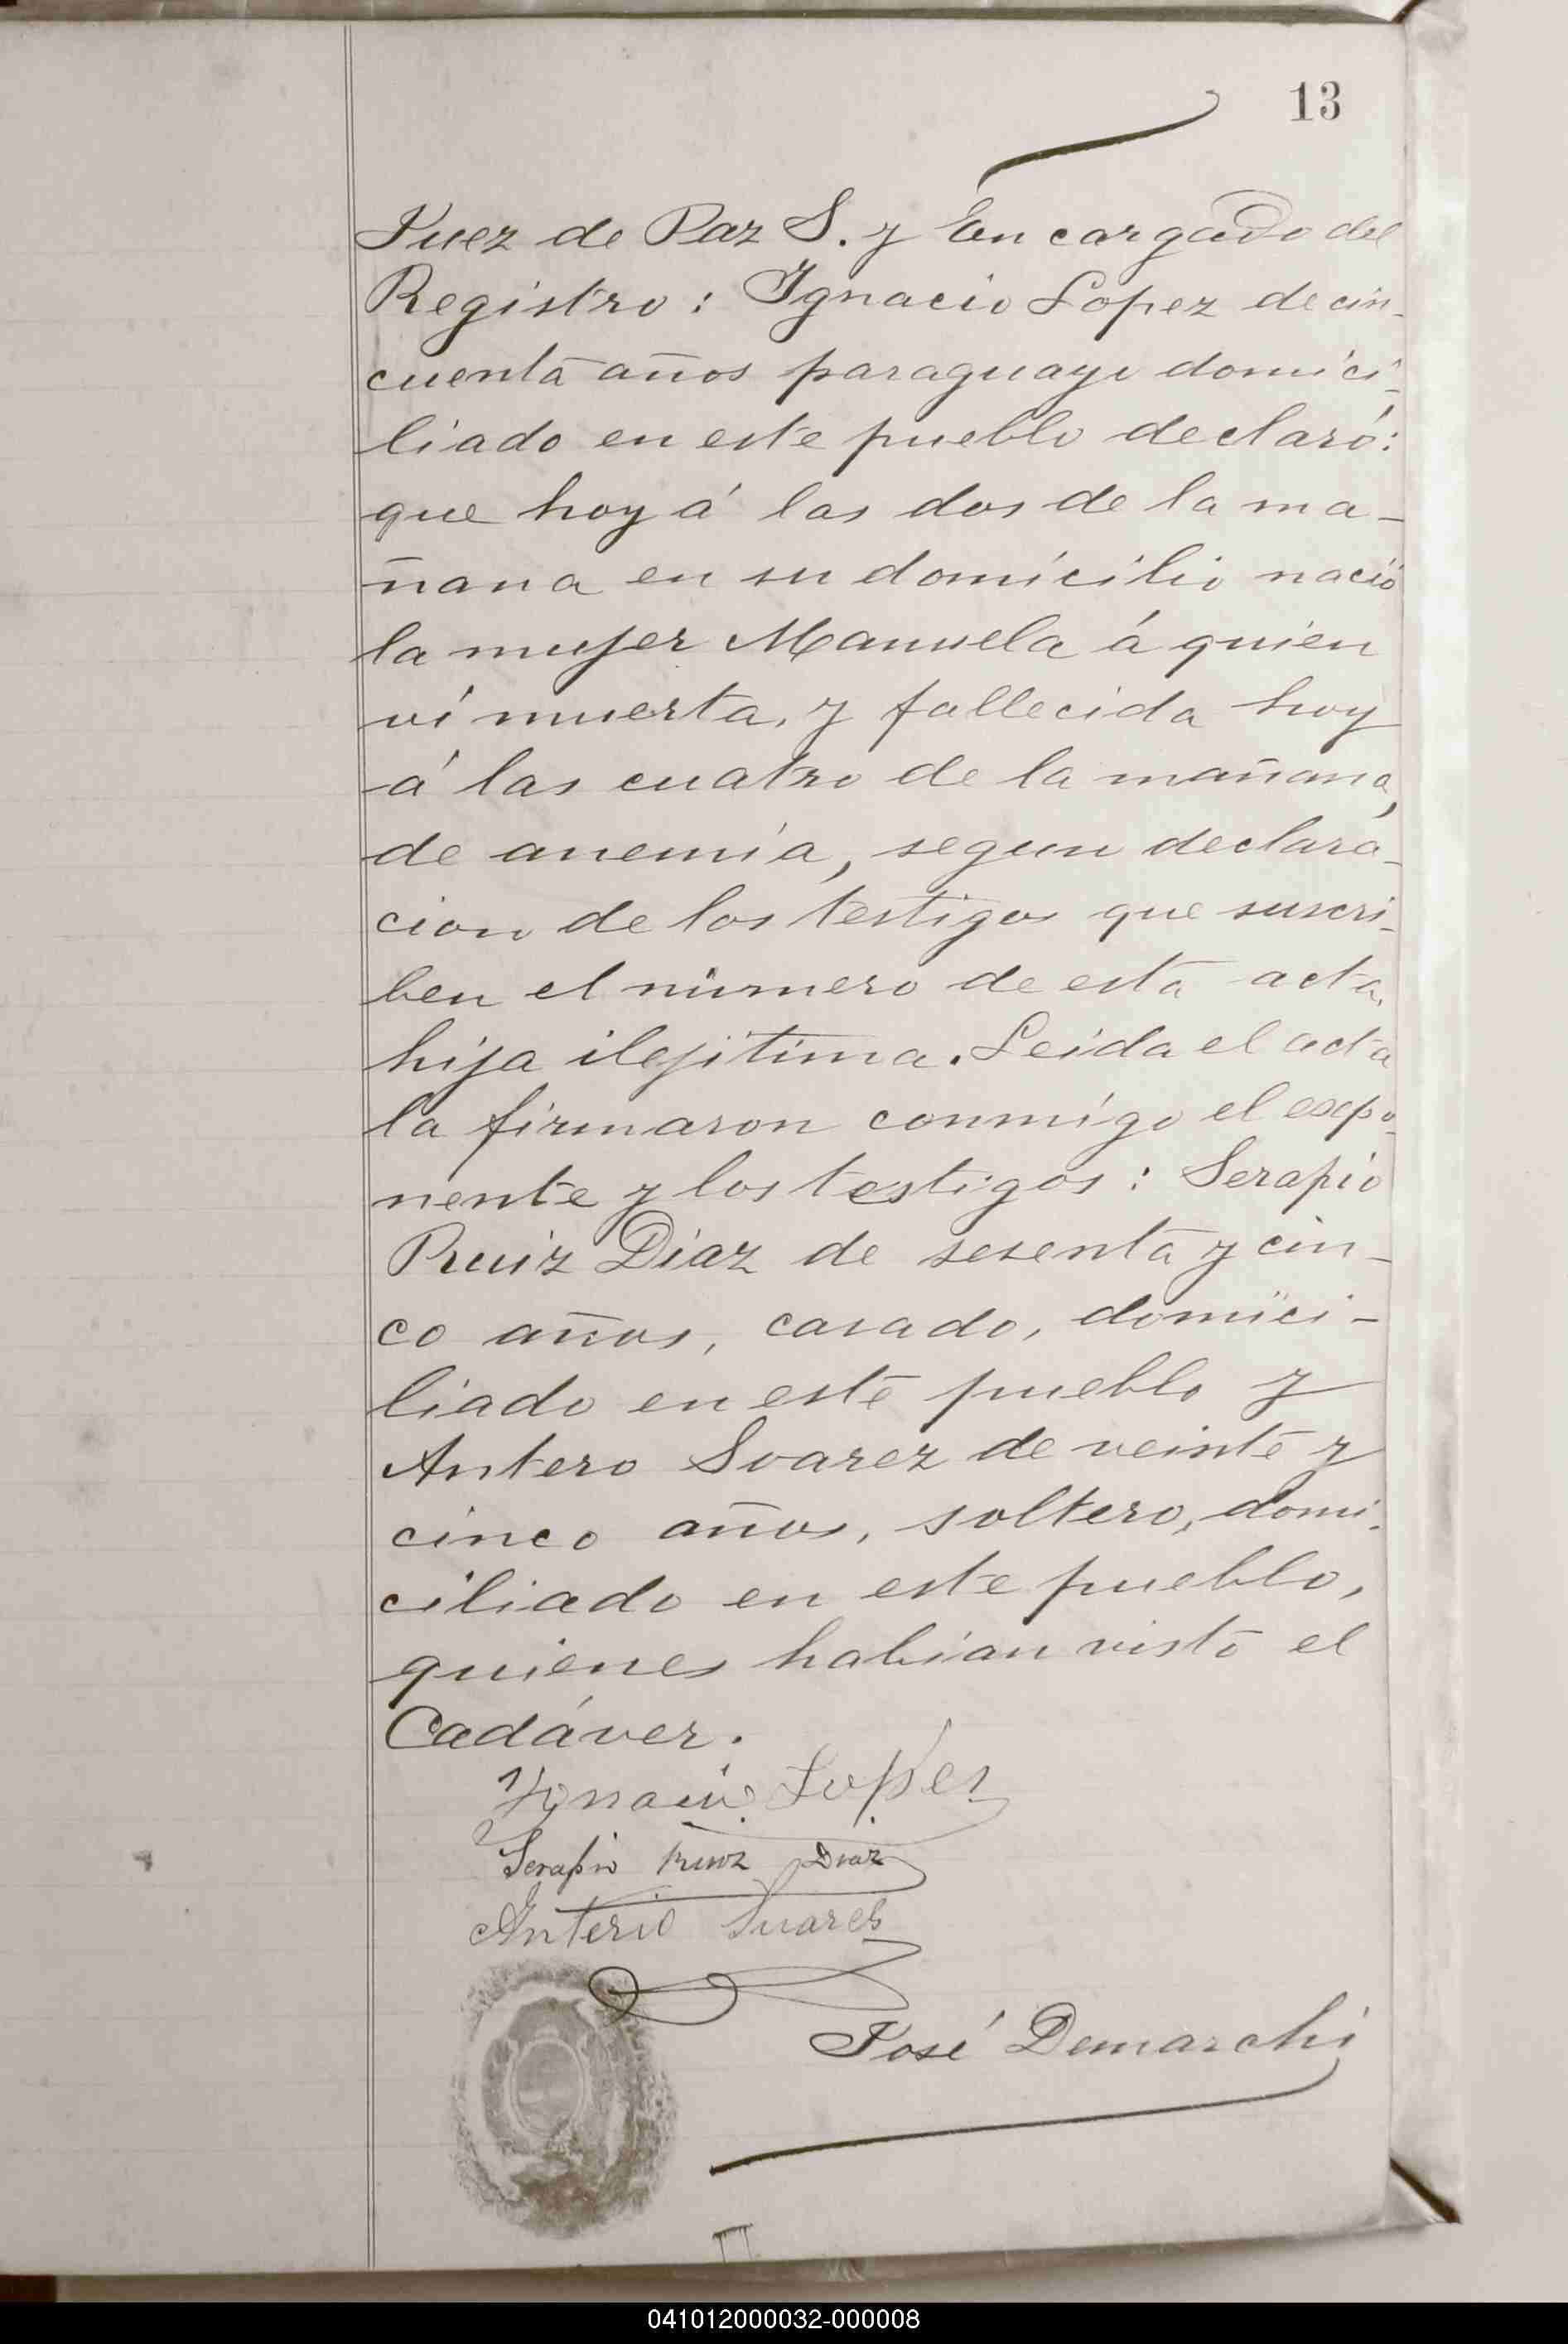 13
Juez de Paz S. y Encargado del
Registro: Ignacio Lopez de cin-
cuenta años paraguayo domici-
liado en este pueblo declaró:
que hoy á las dos de la ma-
ñana en su domicilio nació
la mujer Manuela á quien
ví muerta, y fallecida hoy
á las cuatro de la mañana,
de anemia, segun declara-
cion de los testigos que suscri-
ben el número de esta acta,
hija ilejitima. Leida el acta
la firmaron conmigo el espo-
nente y los testigos: Serapio
Ruiz Diaz de sesenta y cin-
co años, casado, domici-
liado en este pueblo y
Antero Suarez de veinte y
cinco años, soltero, domi-
ciliado en este pueblo,
quienes habian visto el
Cadáver.
Ygnacio Lopes
Serapio Ruiz Diaz
Anterio Suares
José Demarchi
041012000032-000008